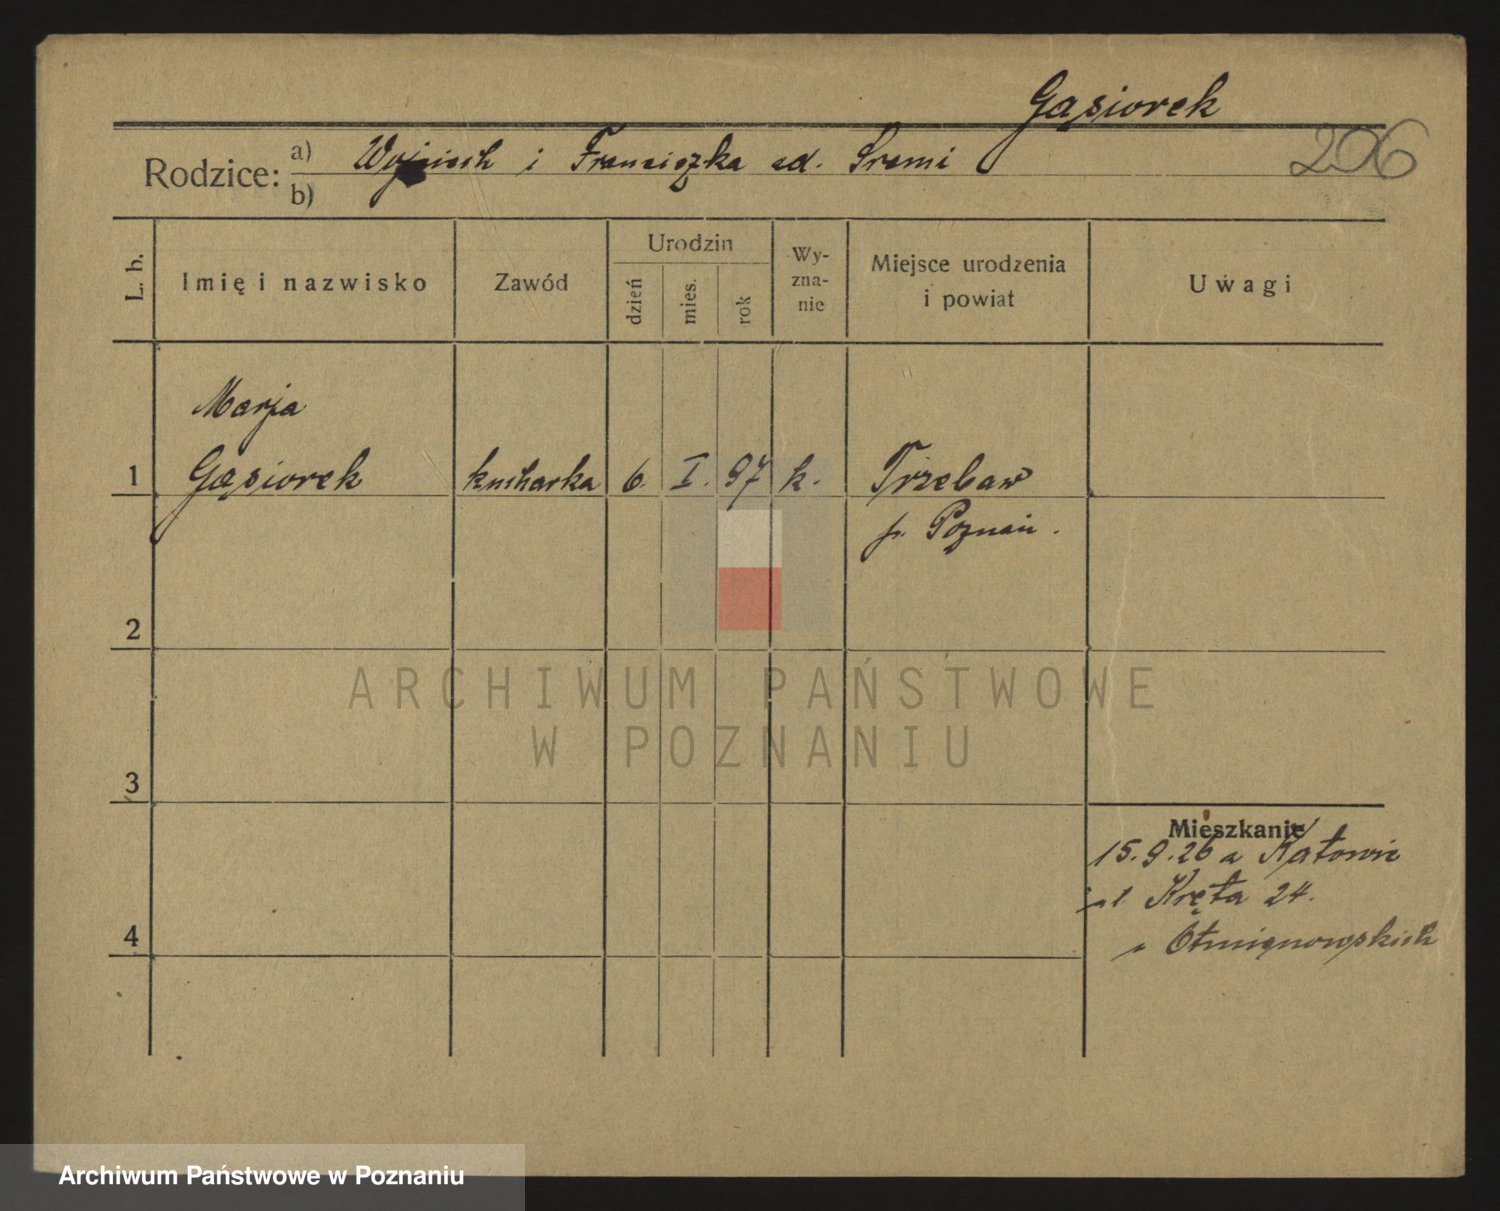 Gąsiorek
206
Rodzice: a) Wojciech i Franciszka
b)
L. b.
Imię i nazwisko
Zawód
Urodzin
dzień
mies.
rok
Wy-
zna-
nie
Miejsce urodzenia
i powiat
Uwagi
Marja
1 Gąsiorek kucharka 6. I. 97 k. Trzebaw
p. Poznań.
2
3
4
Mieszkanie
15.9.26 z Katowic
ul. Kręta 24.
ARCHIWUM PAŃSTWOWE
W POZNANIU
Archiwum Państwowe w Poznaniu